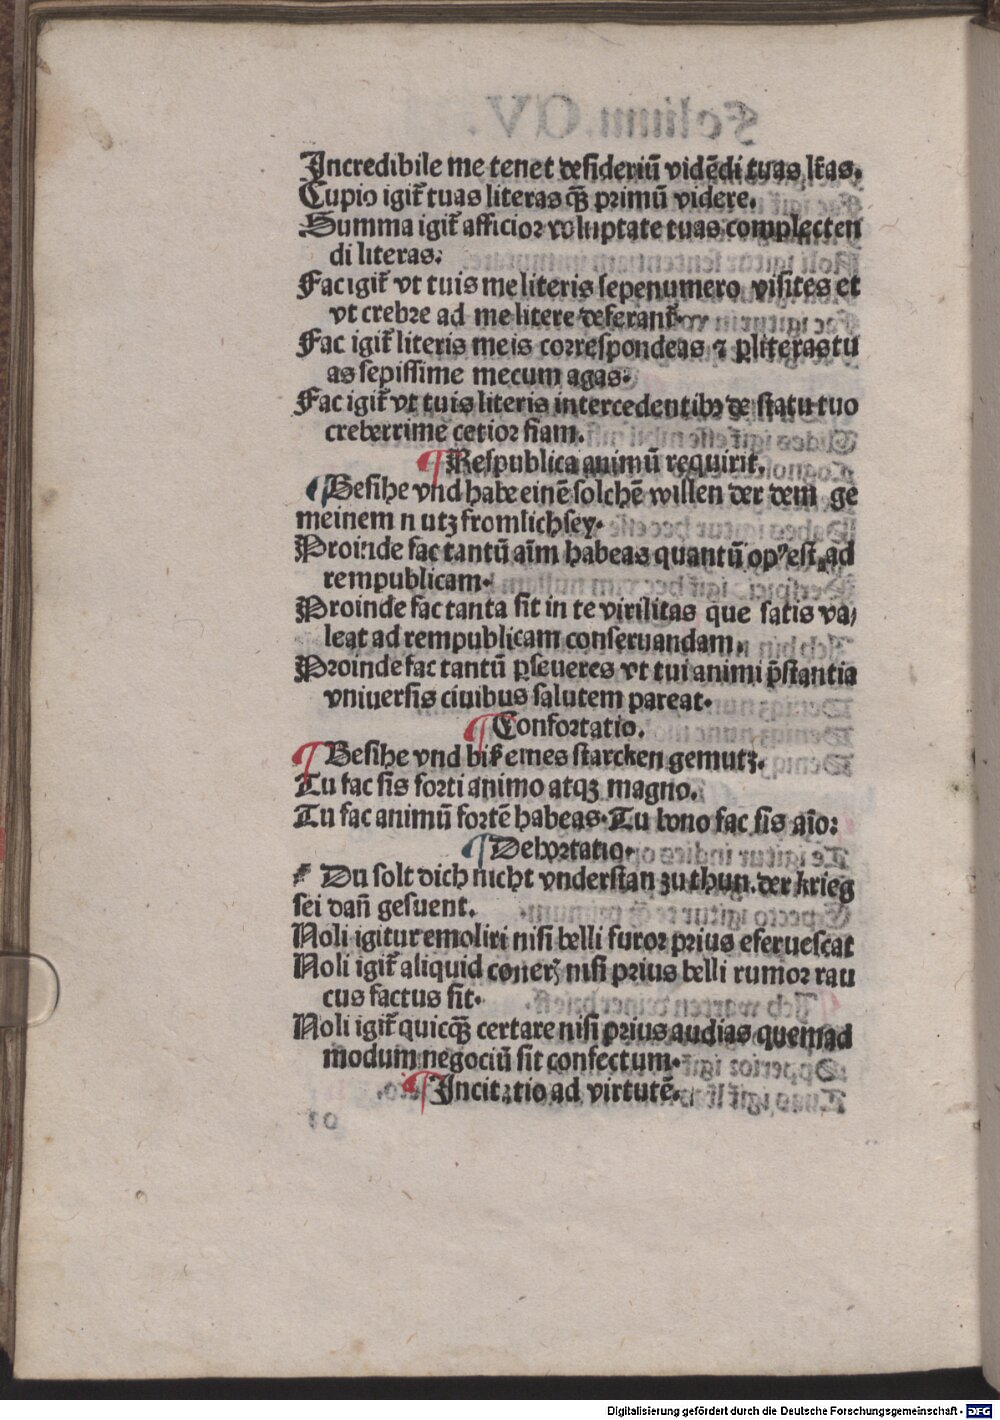 Incredibile me tenet desideriū vidēdi tuas lr̄as.
Cupio igit̄ tuas literas qꝫ̄ primū videre.
Summa igit̄ afficior voluptate tuas complecten
di literas:
Fac igit̄ vt tuis me literis sepenumero visites et
vt crebre ad me litere deferant̄.
Fac igit̄ literis meis correspondeas ⁊ ꝑ literas tu
as sepissime mecum agas:
Fac igit̄ vt tuis literis intercedentibꝫ de statu tuo
creberrime cetior fiam.
¶ Respublica animū requirit.
¶ Besihe vnd habe einē solchē willen der dem ge
meinem n utz fromlich sey.
Proinde fac tantū aīm habeas quantū opꝰ est ad
rempublicam.
Proinde fac tanta sit in te virilitas que satis va/
leat ad rempublicam conseruandam.
Proinde fac tantū ꝑseueres vt tui animi p̄stantia
vniuersis ciuibus salutem pareat.
¶ Confortatio.
¶ Besihe vnd biß eines starcken gemutz.
Tu fac sis forti animo atqꝫ magno.
Tu fac animū fortē habeas. Tu bono fac sis aīo:
¶ Dehortatio.
Du solt dich nicht vnderstan zu thun. der krieg
sei dañ gesuent.
Noli igitur emoliri nisi belli furor prius eferuescat
Noli igit̄ aliquid conerꝫ nisi prius belli rumor rau
cus factus sit.
Noli igit̄ quicqꝫ̄ certare nisi prius audias quemad
modum negociū sit confectum.
¶ Incitatio ad virtutē.
Digitalisierung gefördert durch die Deutsche Forschungsgemeinschaft - DFG